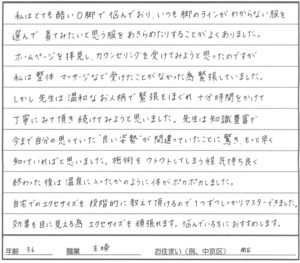 私はとても酷いO脚で悩んでおり、いつも脚のラインがわからない服を
選んで着てみたいと思う服をあきらめたりすることがよくありました。
ホームページを拝見し、カウンセリングを受けてみようと思ったのですが
私は整体、マッサージなど受けたことがなかった為緊張していました。
しかし先生は温和なお人柄で緊張もほぐれ十分時間をかけて
丁寧にみて頂き続けてみようと思いました。先生は知識豊富で
今まで自分の思っていた"良い姿勢"が間違っていたことに驚き、もっと早く
知っていればと思いました。施術もウトウトしてしまう程気持ち良く
終わった後は温泉に入ったかのように体がポカポカしました。
自宅でのエクササイズも段階的に教えて頂けるので1つずつしっかりマスターできました。
効果も目に見える為エクササイズも頑張れます。悩んでいる方におすすめします。
年齢 36 職業 主婦 お住まい(例、中京区)